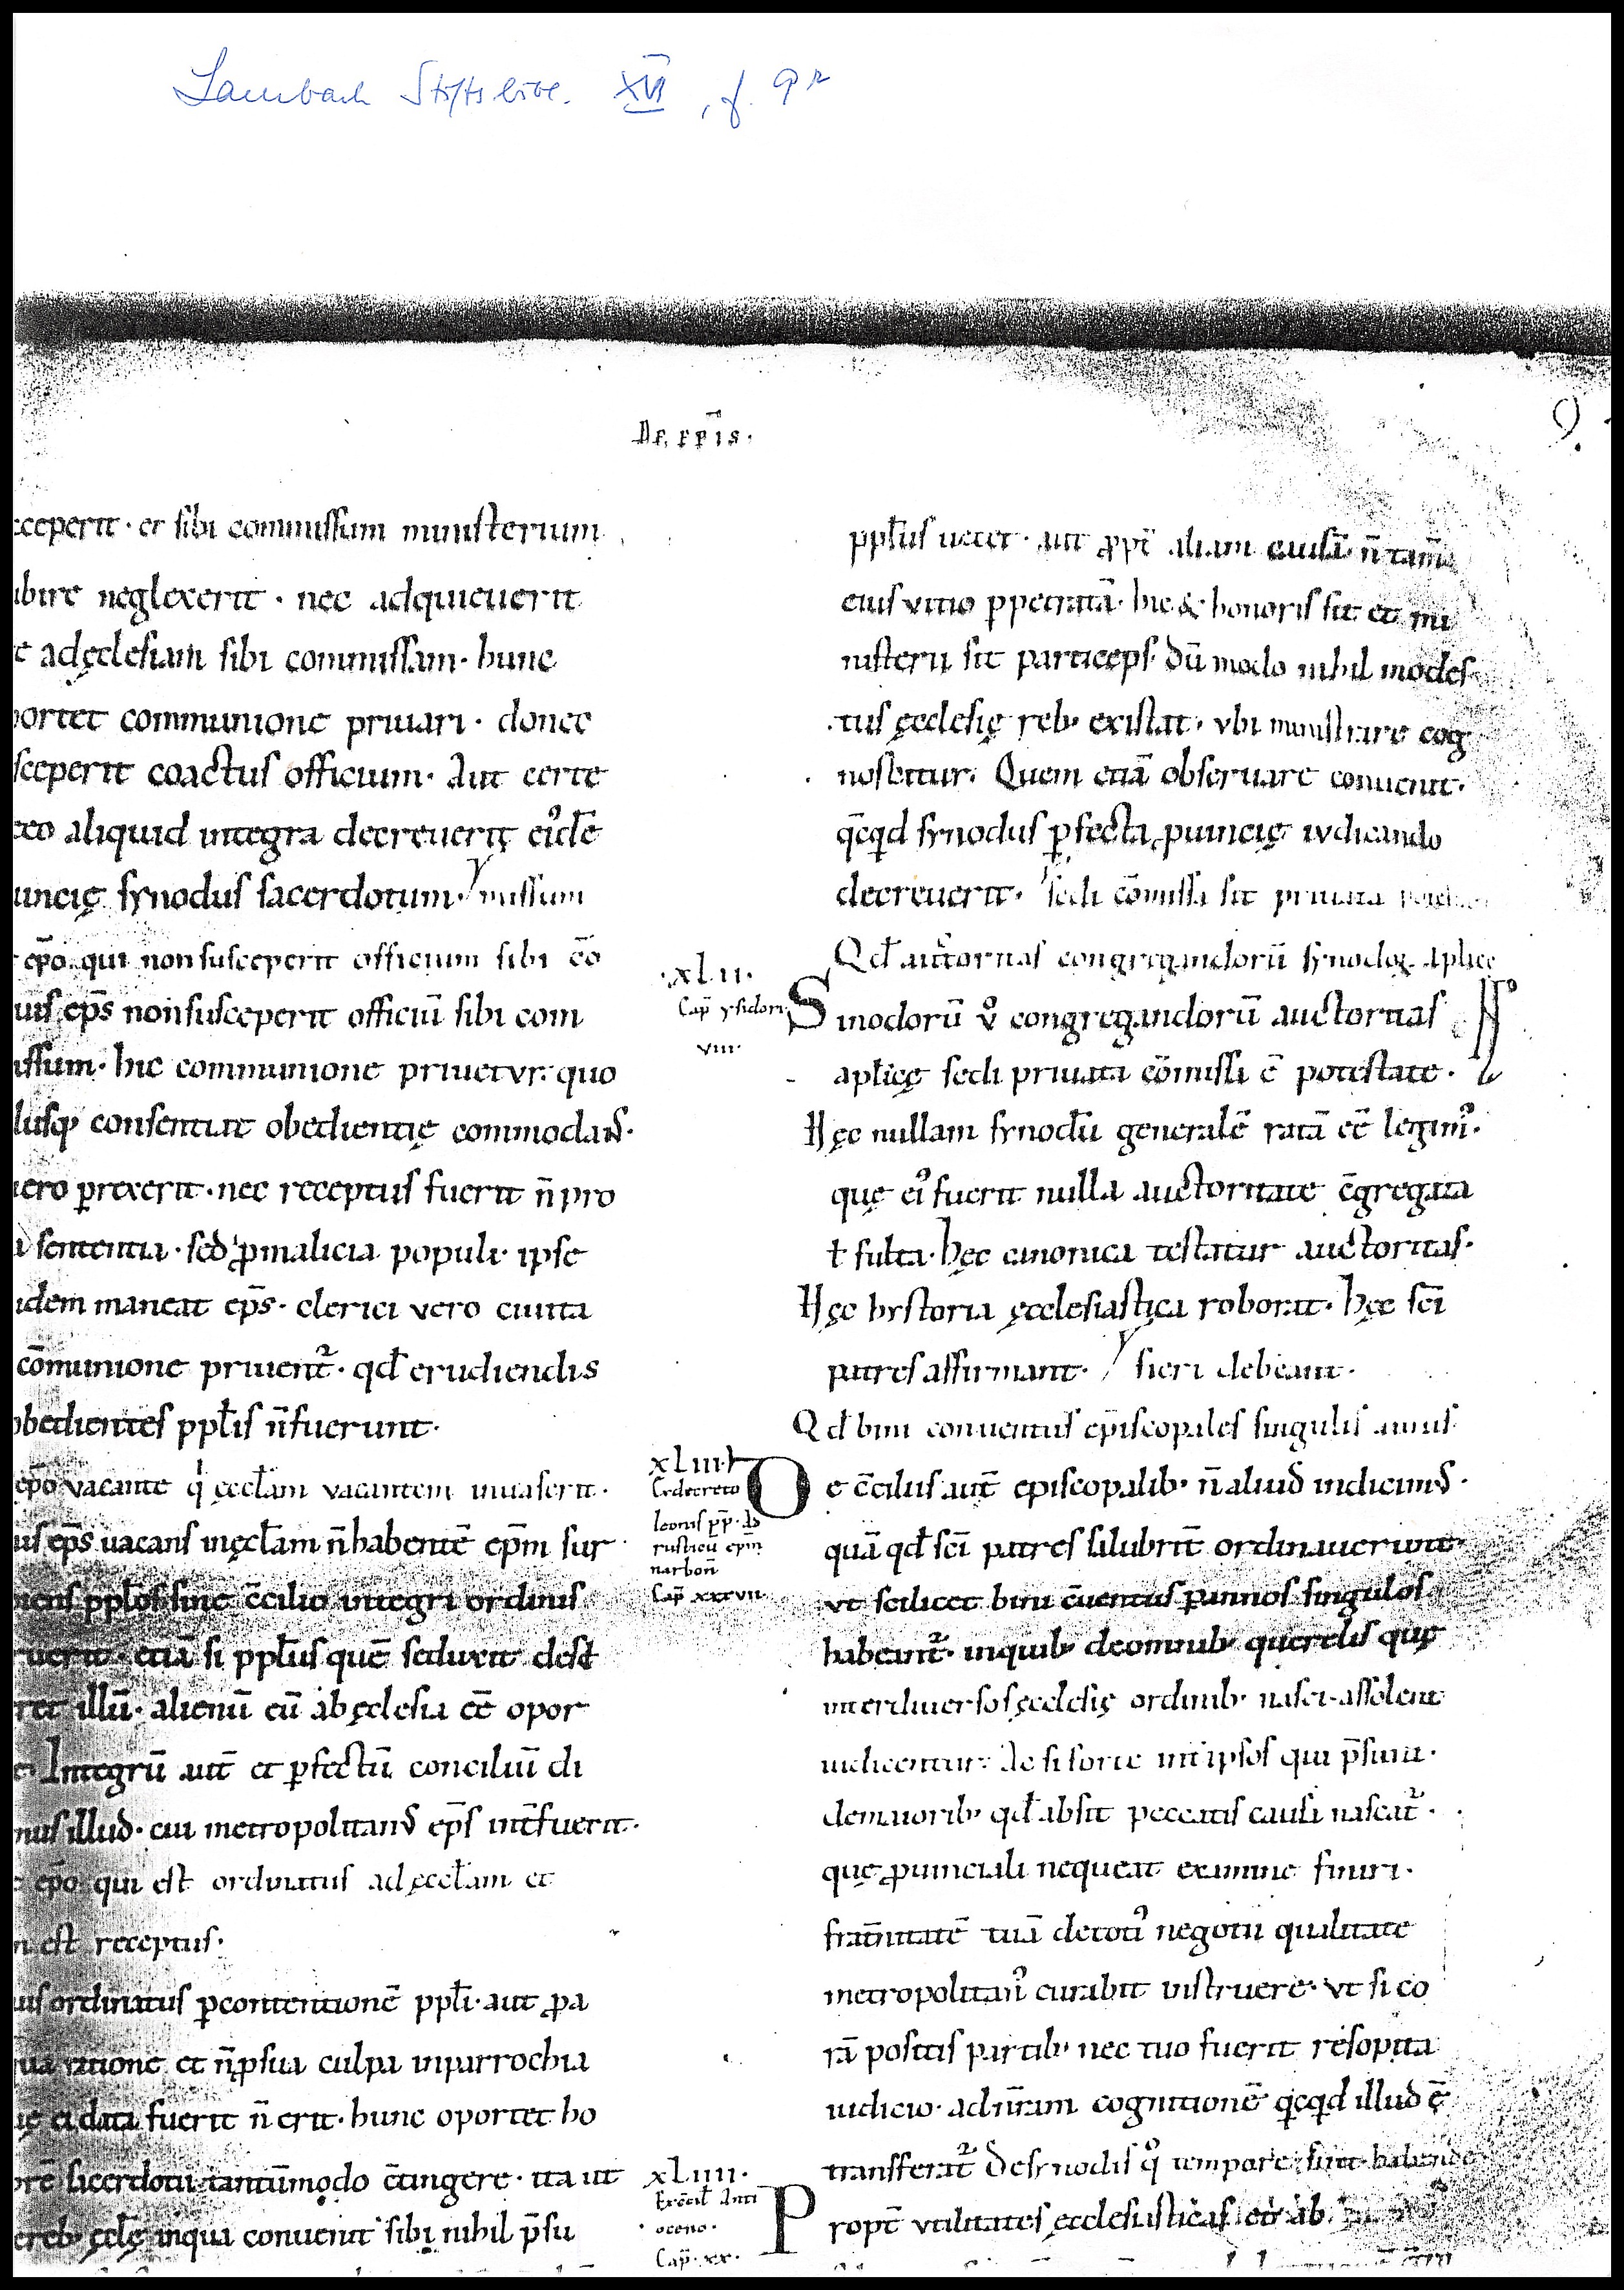 Lambach Stiftsbibl. XVI, f. 9r
De ep̄is.
9.
cceperit · et sibi commissum ministerium
ibire neglexerit · nec adquieuerit
e adęclesiam sibi commissam · hunc
ortet communione priuari · donec
sceperit coactus officium · Aut certe
aliquid integra decreuerit
uincię synodus sacerdotum · missum
ep̄o qui non susceperit officium sibi cō
uis ep̄s non susceperit officiū sibi com
issum · hic communione priuetur: quo
usq; consentiat obedientię commodans ·
uero p̱rexerit · nec receptus fuerit n̄ pro
sententia · sed p̱ malicia populi · ipse
idem maneat ep̄s · clerici vero ciuita
cōmunione priuent̉ · qđ erudiendis
obedientes ppƚis n̄ fuerunt ·
ep̄o vacante q̇ ęccƚam vacantem inuaserit ·
uis ep̄s uacans inęcƚam n̄ habentē ep̄m sur
piens ppƚos sine c̄cilio integri ordinis
ruerit · etiā si ppƚus quē seduxit desi
ret illū · alienū eū ab ęclesia ēē opor
Integrū aut̄ et p̱fectū conciliū di
mus illud · cui metropolitanus ep̄s int̄fuerit ·
ep̄o qui est ordinatus ad ęccƚam et
n est receptus ·
uis ordinatus p̱ contentionē ppƚi · aut p̱ a
ratione et n̄ p̱ sua culpa inparrochia
ei data fuerit n̄ erit · hunc oportet ho
orē sacerdotii tantūmodo c̄tingere · ita ut
ereb; ęcƚę inqua conuenit sibi nihil p̄su
ppƚus uetet · aut p̱pt̄ aliam causā · n̄ tam̄
eius vitio p̱petratā · hic & honoris sit et mi
nisterii sit particeps · dū modo nihil moles
tus ęcclesię reb; existat · vbi ministrare cog
noscitur · Quem etiā obseruare conuenit ·
q̇cq̇d synodus p̱fecta p̱uincię iudicando
decreuerit · sedi cōmissa sit priuata
·xlii·
Cap̄ ysidori
viii·
Qđ auctoritas congregandorū synodoꝝ aplice
Sinodorū v̊ congregandorū auctoritas
apƚicę sedi priuata cōmissa ē potestate ·
Hęc nullam synodū generalē ratā ēē legim̉ ·
quę eỉ fuerit nulla auctoritate c̄gregata
ƚ fulta · hęc canonica testatur auctoritas ·
Hęc hystoria ęcclesiastica roborat · hęc sc̄i
patres affirmant · fieri debeant ·
Qđ bini conuentus episcopales singulis annis
xliii
Ex decreto
leonis pp̄ · ad
rusticū ep̄m
narbon̄
Cap̄ xxxvii
De c̄ciliis aut̄ episcopalib; n̄ aliud indicimus ·
quā qđ sc̄i patres salubrit̄ ordinauerunt
vt scilicet bini c̄uentus p̱ annos singulos
habeant̉ · inquib; deomnib; querelis quę
interdiuersos ęcclesię ordinib; nasci assolent
iudicentur: Ac si forte int̄ ipsos qui p̄sunt ·
demaiorib; qđ absit peccatis causa nascat̉ ·
quę p̱uinciali nequeat examine finiri ·
frat̄nitatē tuā detotỉ negotii qualitate
metropolitan̉ curabit instruere · vt si co
rā positis partib; nec tuo fuerit resopita
iudicio · ad nr̄am cognitionē q̇cq̇d illud ē
transferat̉ De synodis q̊ tempore sint habende
xliiii·
Ex c̄ciƚ Anti
oceno ·
Cap̄ · xx ·
Propt̄ vtilitates ęcclesiasticas et ab